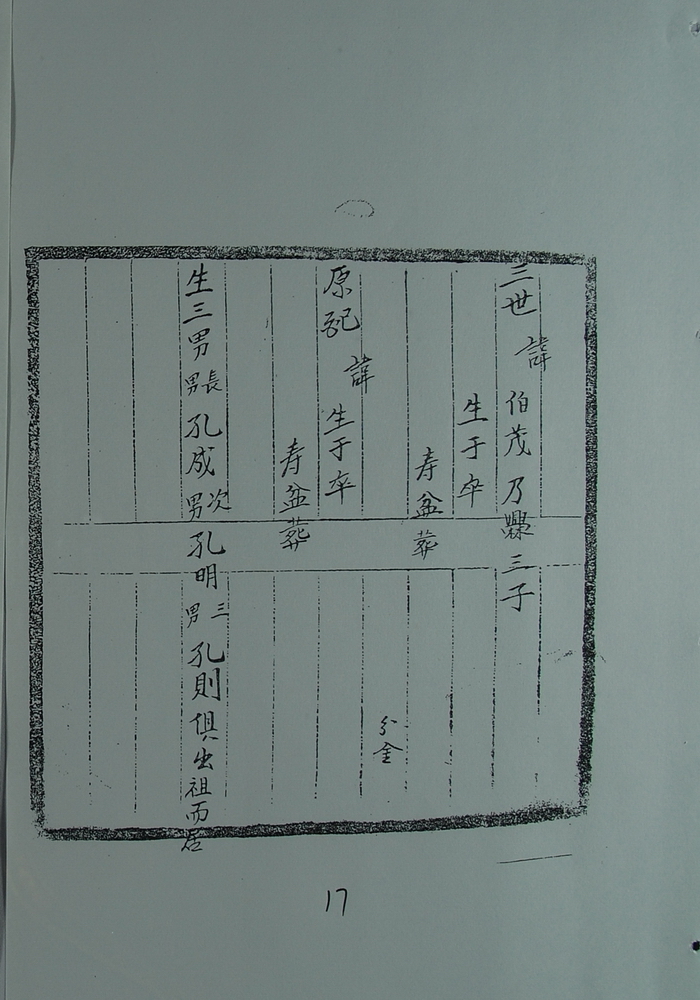 三世 諱 伯茂 乃 三子
生于 卒
寿益 葬
分金
原配 諱 生于 卒
寿益 葬
生三男 長男 孔成 次男 孔明 三男 孔則 俱出祖而居
17